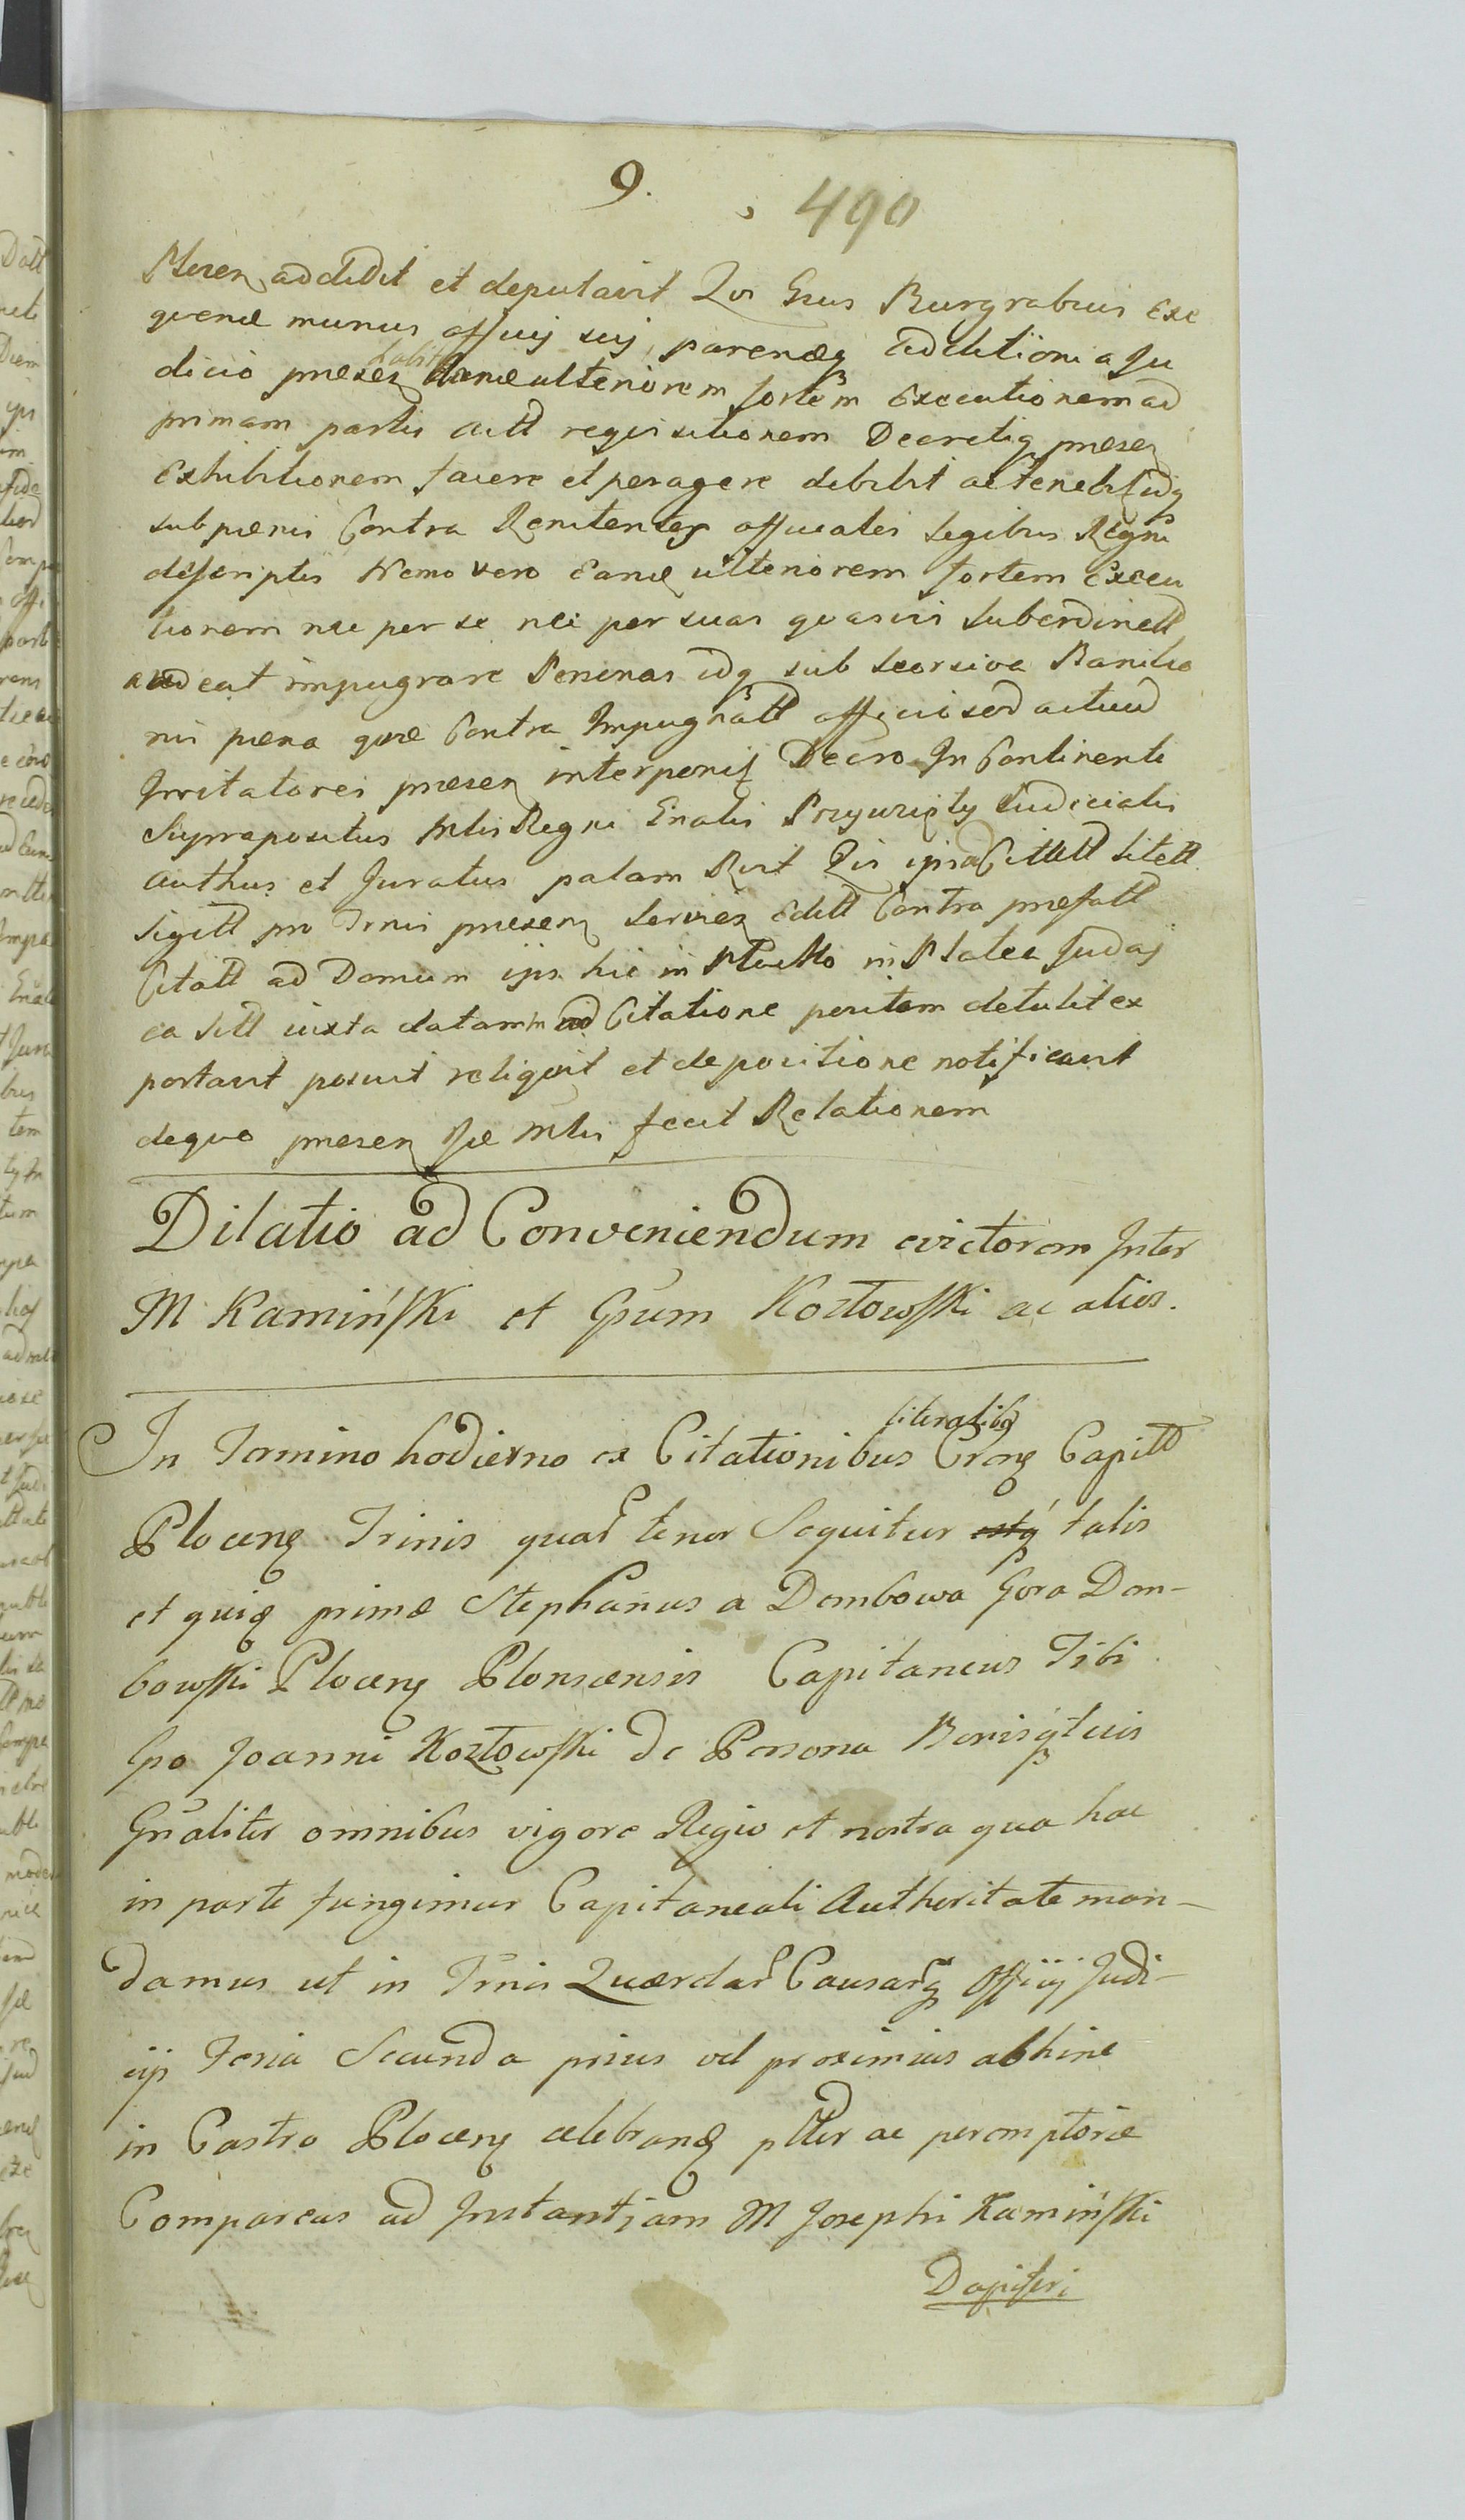 9. 490
addidit et deputavit Qui Gsus Burgrabius Exe
quendæ munus officij sui parendæq additioni a Ju
habita
dicio præsen eandæ ulteriorem fortem Executionem ad
primam partis actt requisitionem Decretiq præsen
Exhibitionem facere et peragere debebit ac tenebit idq
sub pænis Contra Renitentes officiales Legibus Regni
descriptis Nemo vero Eand ulteriorem fortem Execu
tionem nec per se nec per suas quasvis Subordinatt
audeat impugnare Personas idq sub seorsiva Banitio
nis pæna quæ Contra Impugnatt officiosed actued
Irritatores præsen interposit Decro In Continenti
Suprapositus Mtlis Regni Gnalis Judicialis
Authus et Juratus palam Rcit Qis ipse Citatt Litett
Sigill pro Trnis præsen Servien Editt Contra præfatt
Citatt ad Domum ips hic in Płocko in Platea Judaj
ea sitt iuxta datam in Citatione positam detulit ex
portavit posuit reliquit et de positione notificavit
dequo præsen se Mtlis fecit Relationem
Dilatio ad Conveniendum evictorem Inter
M Kamińſki et Gsum Kozłowſki ac alios.
literalibq
In Termino hodierno ex Citationibus Cren Capitt
Plocens Trinis quar tenor Sequitur estq talis
et quidq primæ Stephanus a Dembowa Gora Dem-
bowſki Plocens Plonscensis Capitaneus Tibi
Gso Joanni Kozłowſki de Persona Bonisq tuis
Gnaliter omnibus vigore Regio et nostra qua hac
in parte fungimur Capitaneali Authoritate man-
damus ut in Trnis Querelar Causarq Officij Judi-
cij Feria Secunda prius vel proximius abhinc
in Castro Plocens celebrand ptter ac peremptorie
Compareas ad Instantiam M Josephi Kamińſki
Dapiferi